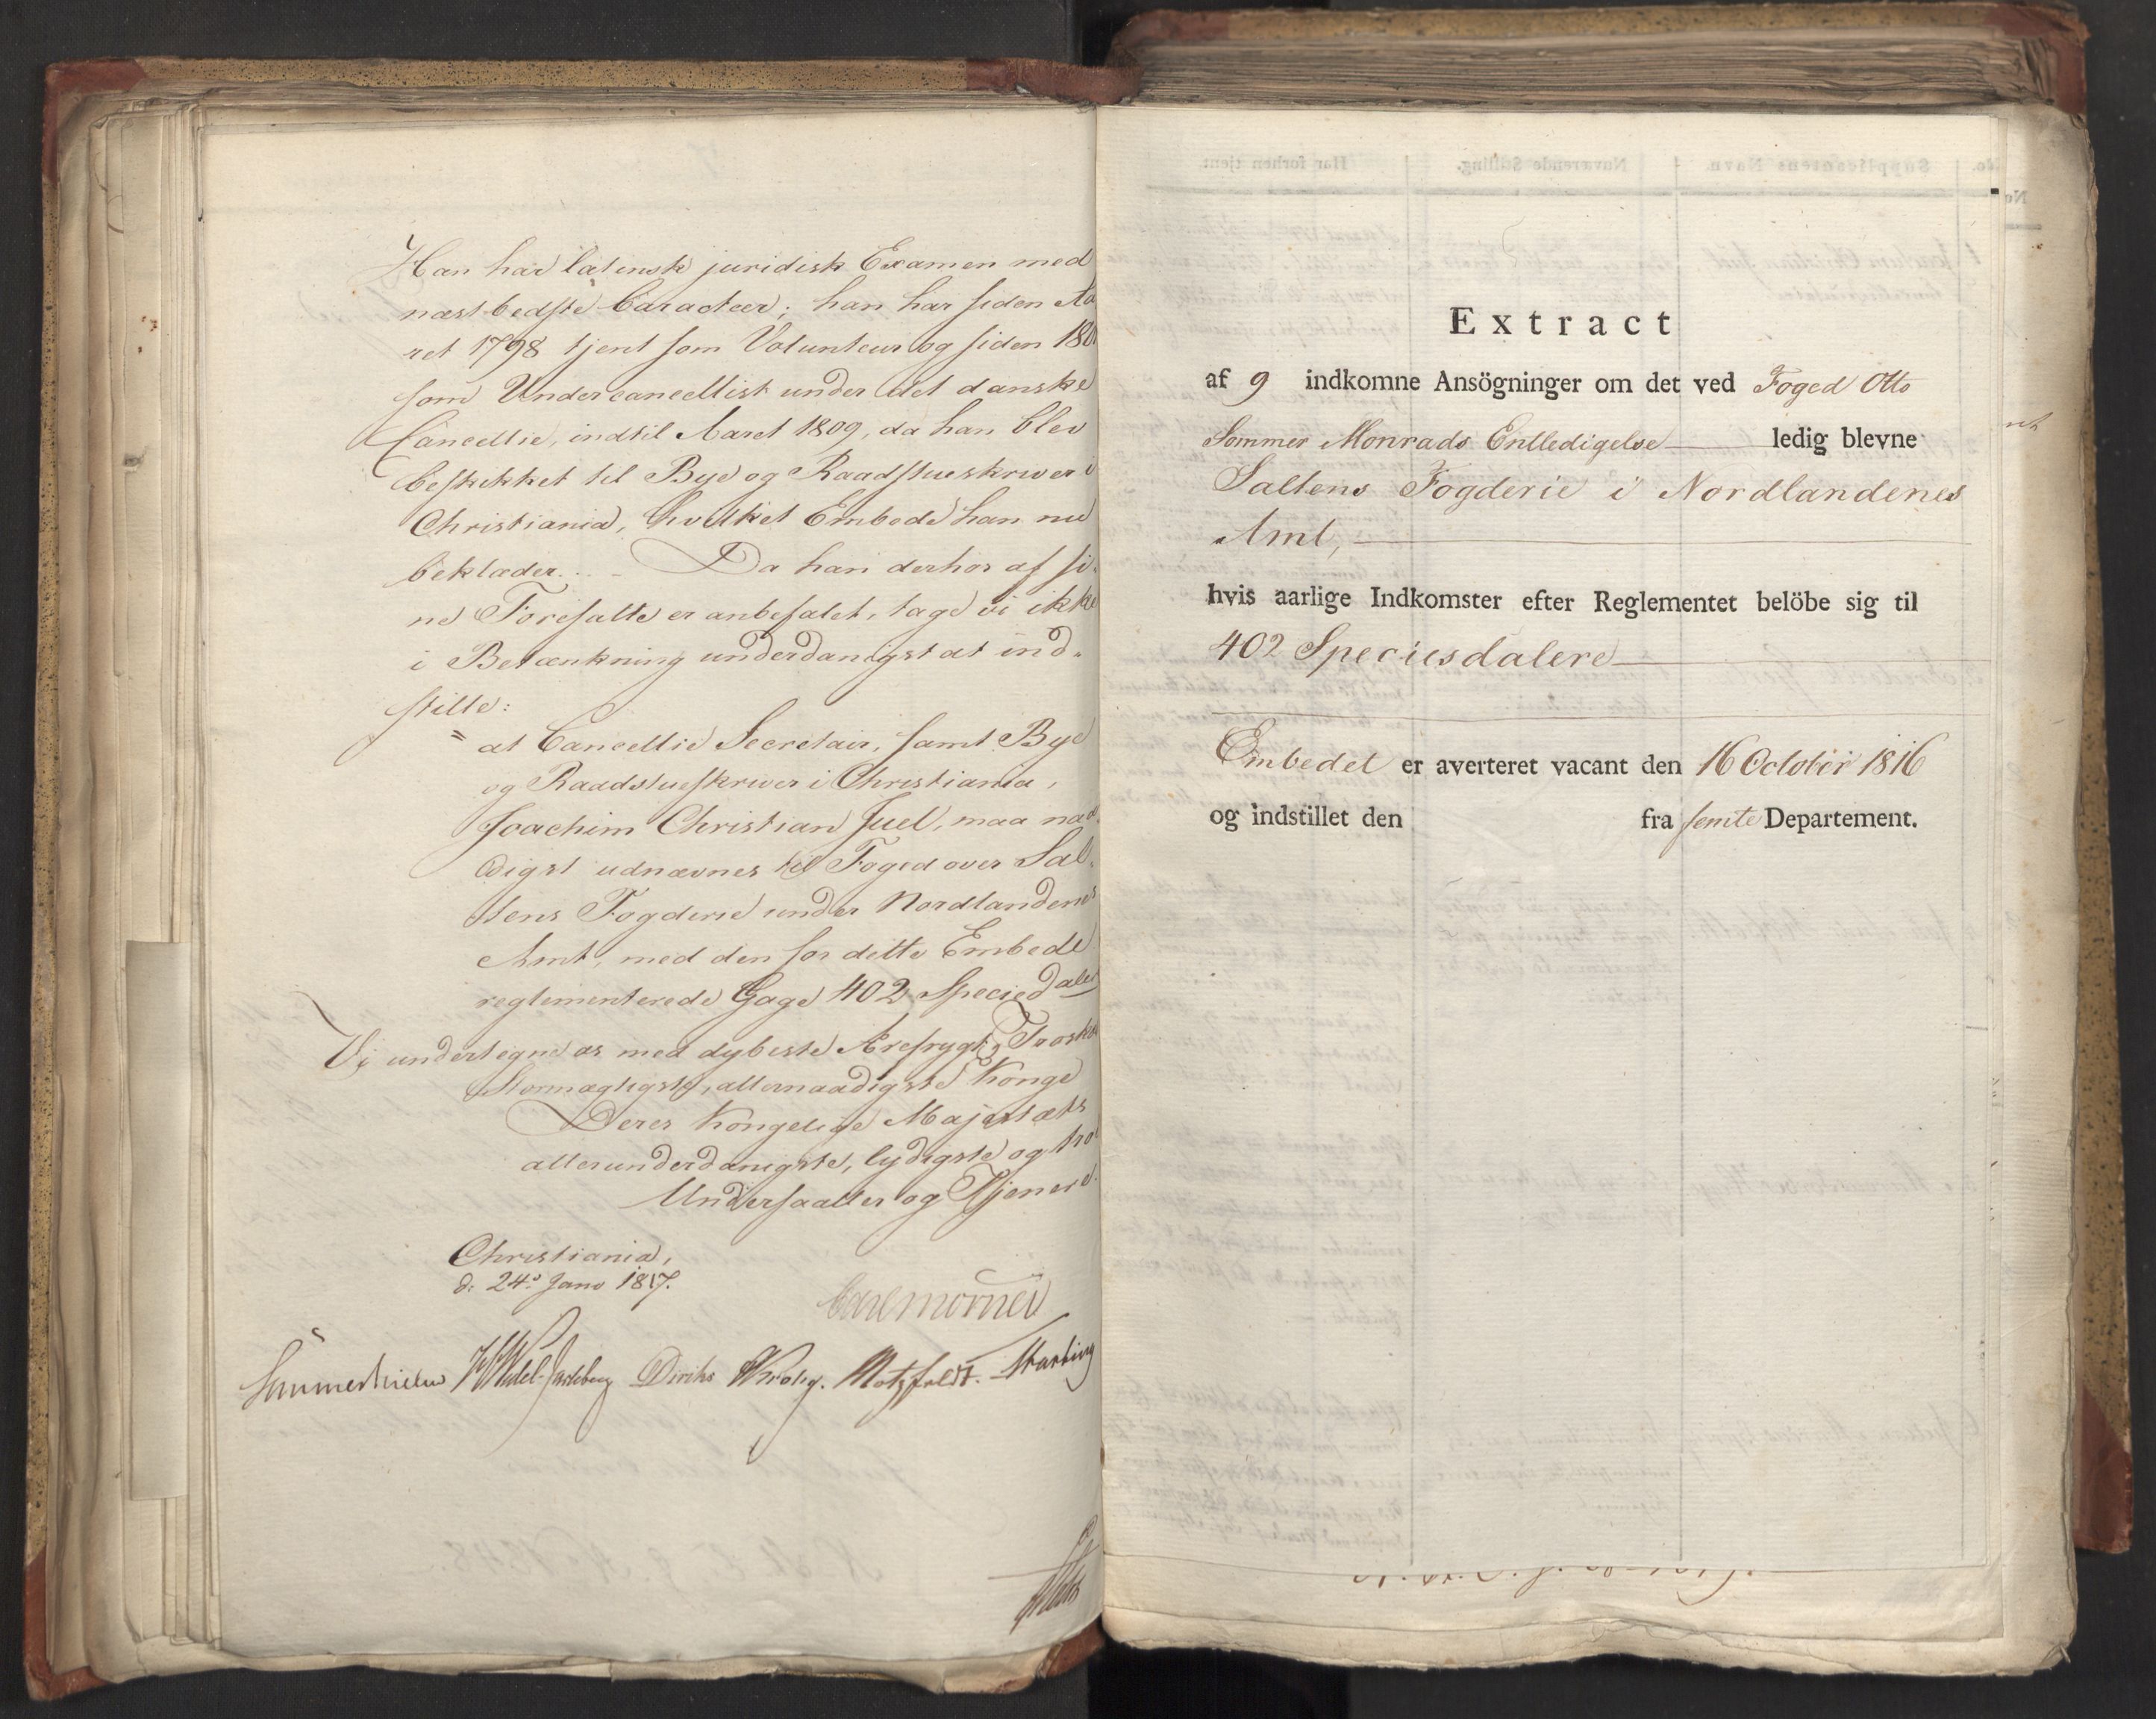 Han har latinsk juridisk Examen med
næstbedste Caracteer; han har siden Aa
ret 1798 tjent som Volunteur og siden 180
som Undercancellist under det danske
Cancellie, indtil Aaret 1809, da han blev
beskikket til Bye og Raadstueskriver i
Christiania, hvilket Embede han nu
beklæder. _ Da han derhos af si-
ne Foresatte er anbefalet, tage vi ikke
i Betænkning underdanigst at ind-
stille:
" at Cancellie Secretair, samt Bye
og Raadstueskriver i Christiania,
Joachim Christian Juel, maa naa-
digst udnævnes til Foged over Sal-
tens Fogderie under Nordlandenes
Amt, med den for dette Embede
reglementerede Gage 402 Speciedaler
Vi undertegne os med dybeste Ærefrygt og Troskab
Stormægtigste, allernaadigste Konge
Deres Kongelige Majestæts
allerunderdanigste, lydigste og tro
Undersaatter og Tjenere.
Christiania,
d: 24de Janv 1817.
Carl Mörner
Sommerhielm HWedel-Jarlsberg Diriks Krohg. Motzfeldt.
Extract
af 9 indkomne Ansögninger om det ved Foged Otto
Sommer Monrads Entledigelse ledig blevne
Saltens Fogderie i Nordlandenes
Amt,
hvis aarlige Indkomster efter Reglementet belöbe sig til
402 Speciesdalere
Embedet er averteret vacant den 16 October 1816
og indstillet den fra femte Departement.